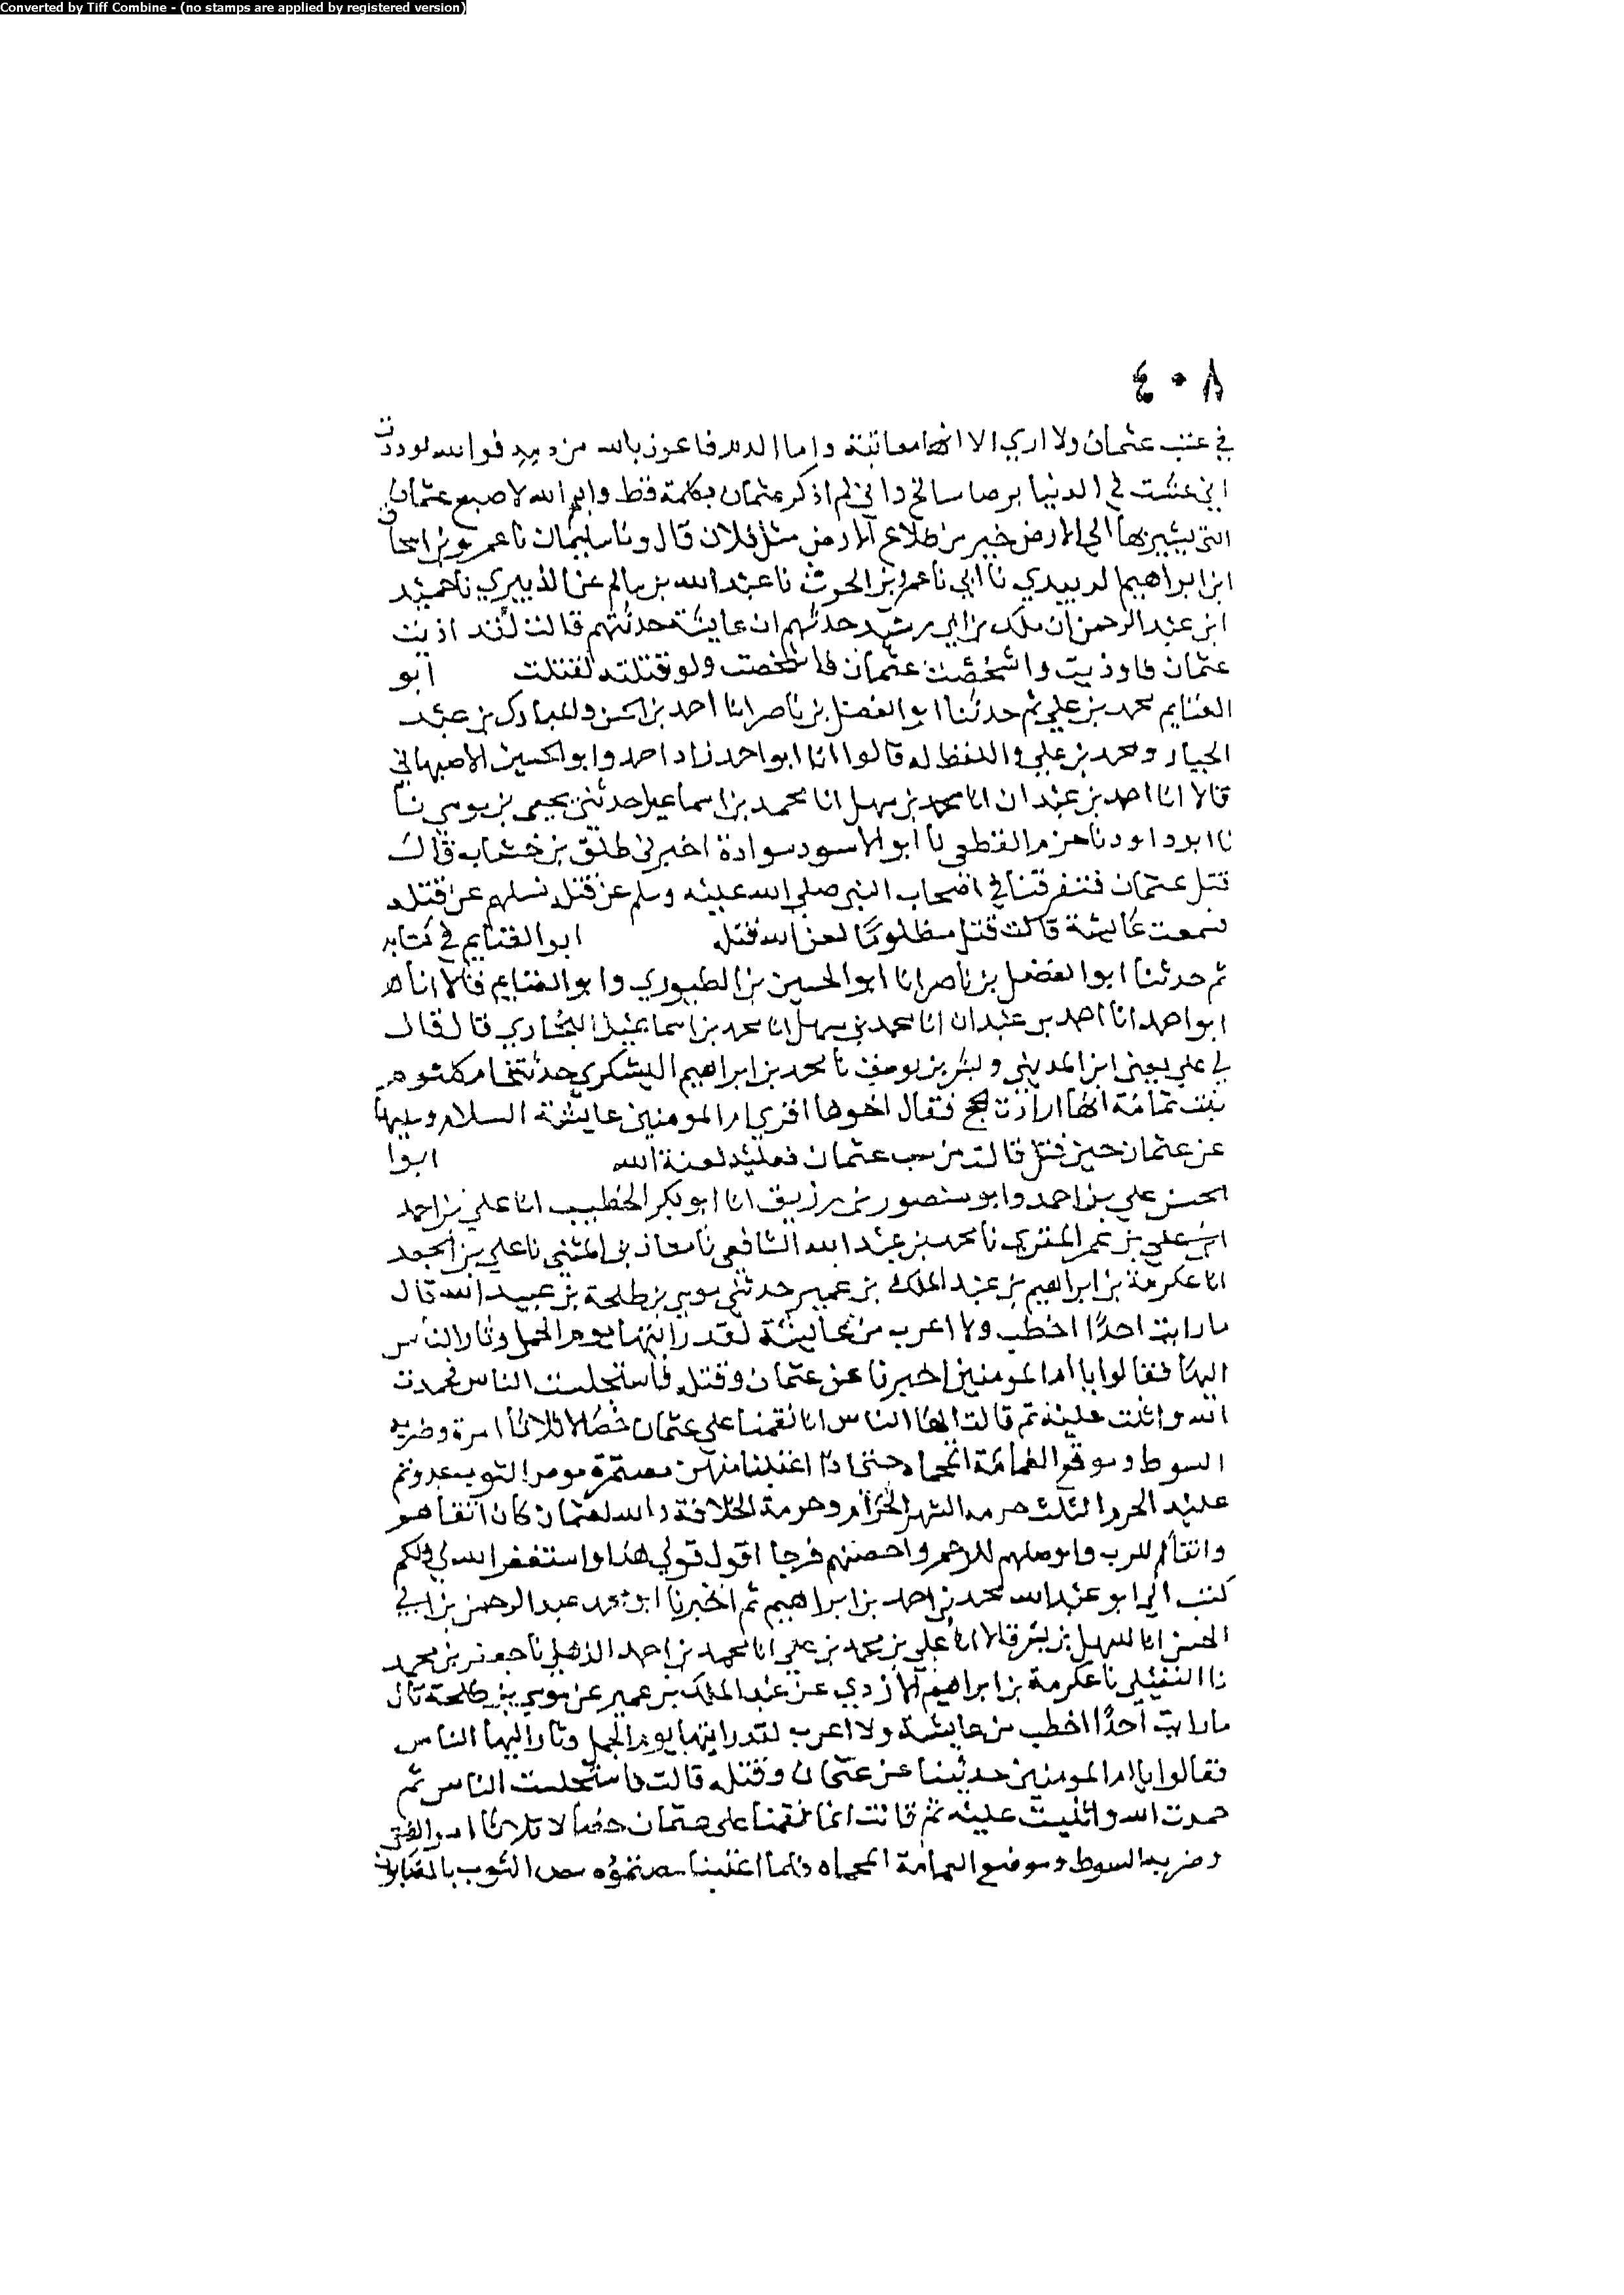 Converted by Tiff Combine - (no stamps are applied by registered version)
٤٠٨
في عتب عثمان ولا اري الا انها معاتبة واما الدم فاعوذ بالله من دمه فوالله لوددت
اني عشت في الدنيا برصا سالخ واني لم اذكر عثمان بكلمة قط وايم الله لاصبع عثمان
التي يشير بها الى الارض خير من طلاع الارض مثل فلان قال ونا سليمان نا عمرو بن اسحاق
ابن ابراهيم الزبيدي نا ابي نا عمرو بن الحرث نا عبد الله بن سالم عن الزبيري نا حميد
ابن عبد الرحمن ان ملك بن ابي رشيد حدثهم ان عايشة حدثتهم قالت لقد اذيت
عثمان فاوذيت واشخصت عثمان فاشخصت ولو قتلته لقتلت ابو
الغنايم محمد بن علي ثم حدثنا ابو الفضل بن ناصر انا احمد بن الحسن والمبارك بن عبد
الجبار ومحمد بن علي واللفظ له قالوا انا ابو احمد زاد احمد وابو الحسين الاصبهاني
قالا انا احمد بن عبدان انا محمد بن سهل انا محمد بن اسماعيل حدثني يحيى بن موسى نا
نا ابو داود نا حزم القطعي نا ابو الاسود سوادة اخبرني طلق بن خشاب قال
قتل عثمان فتفرقنا في اصحاب النبي صلى الله عليه وسلم عن قتله نسلهم عن قتله
فسمعت عايشة قالت قتل مظلوما لعن الله قتله ابو الغنايم في كتابه
ثم حدثنا ابو الفضل بن ناصر انا ابو الحسين بن الطيوري وابو الغنايم قالا انا
ابو احمد انا احمد بن عبدان انا محمد بن سهل انا محمد بن اسماعيل البخاري قال قال
لي علي يعني ابن المديني وبشر بن يوسف نا محمد بن ابراهيم اليشكري حدثتنا ام كلثوم
بنت ثمامة انها ارادت الحج فقال اخوها اقري ام المومنين عايشة السلام وسليها
عن عثمان حين قتل قالت من سب عثمان فعليه لعنة الله ابوا
الحسن علي بن احمد وابو منصور بن زريق انا ابو بكر الخطيب انا علي بن احمد
ابن علي بن عمر المقري نا محمد بن عبد الله الشافعي نا معاذ بن المثنى نا علي بن الجعد
انا عكرمة بن ابراهيم بن عبد الملك بن عمير حدثني موسى بن طلحة بن عبيد الله قال
ما رايت احدا اخطب ولا اعرب من عايشة لقد رايتها يوم الجمل وثار الناس
اليها فقالوا يا ام المومنين اخبرنا عن عثمان وقتله فاستجلست الناس فحمدت
الله واثنت عليه ثم قالت ايها الناس انا نقمنا على عثمان خصالا ثلاثا امرة وضربه
السوط وموقع الغمامة المحماة حتى اذا اعتبنا منهن
عليه الحرم الثلث حرمة الشهر الحرام وحرمة الخلافة والله لعثمان كان اتقاهم
واتقاهم للرب واوصلهم للرحم واحصنهم فرجا اقول قولي هذا واستغفر الله لي ولكم
كتب الي ابو عبد الله محمد بن احمد بن ابراهيم ثم اخبرنا ابو محمد عبد الرحمن بن ابي
الحسن انا سهل بن بشر قالا انا علي بن محمد بن علي انا محمد بن احمد الذهلي نا جعفر بن محمد
نا النفيلي نا عكرمة بن ابراهيم الازدي عن عبد الملك بن عمير عن موسى بن طلحة قال
ما رايت احدا اخطب من عايشة ولا اعرب لقد رايتها يوم الجمل وثار اليها الناس
فقالوا يا ام المومنين حدثينا عن عثمان وقتله قالت فاستجلست الناس ثم
حمدت الله واثنيت عليه ثم قالت انما نقمنا على عثمان خصالا ثلاثا
وضربه السوط وموضع الغمامة المحماه فلما اعتبنا